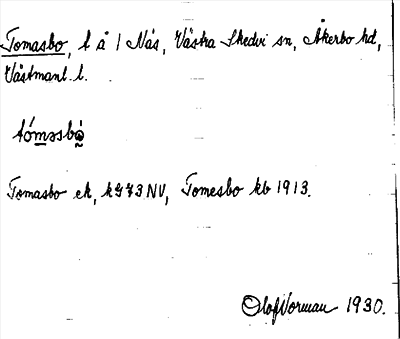 Tomasbo, t å 1 Nås, Västra Skedvi sn, Åkerbo hd,
Västmanl. l.
tómasbo
Tomasbo ek, k 973 NV, Tomesbo kb 1913.
Olof Norman 1930.